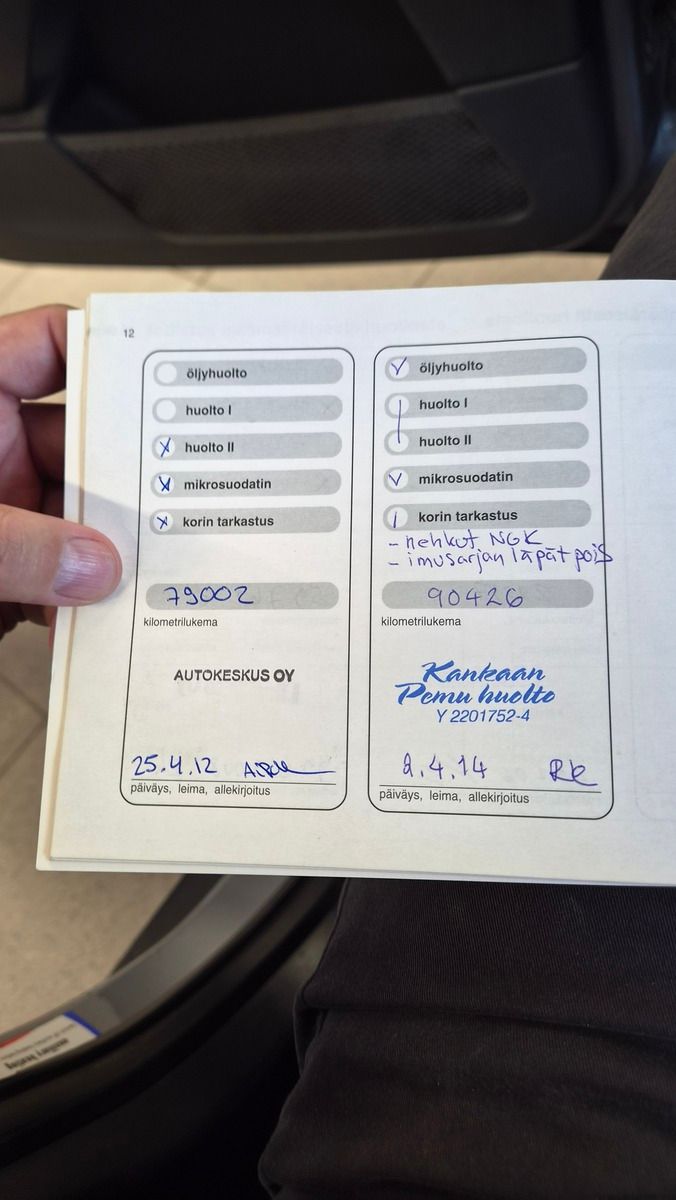 12
öljyhuolto
huolto I
huolto II
mikrosuodatin
korin tarkastus
79002
kilometrilukema
AUTOKESKUS OY
25.4.12
päiväys, leima, allekirjoitus
öljyhuolto
huolto I
huolto II
mikrosuodatin
korin tarkastus
- hehkut NGK
- imusarjan läpät pois
90426
kilometrilukema
Kankaan
Pemu huolto
Y 2201752-4
2.4.14 RK
päiväys, leima, allekirjoitus